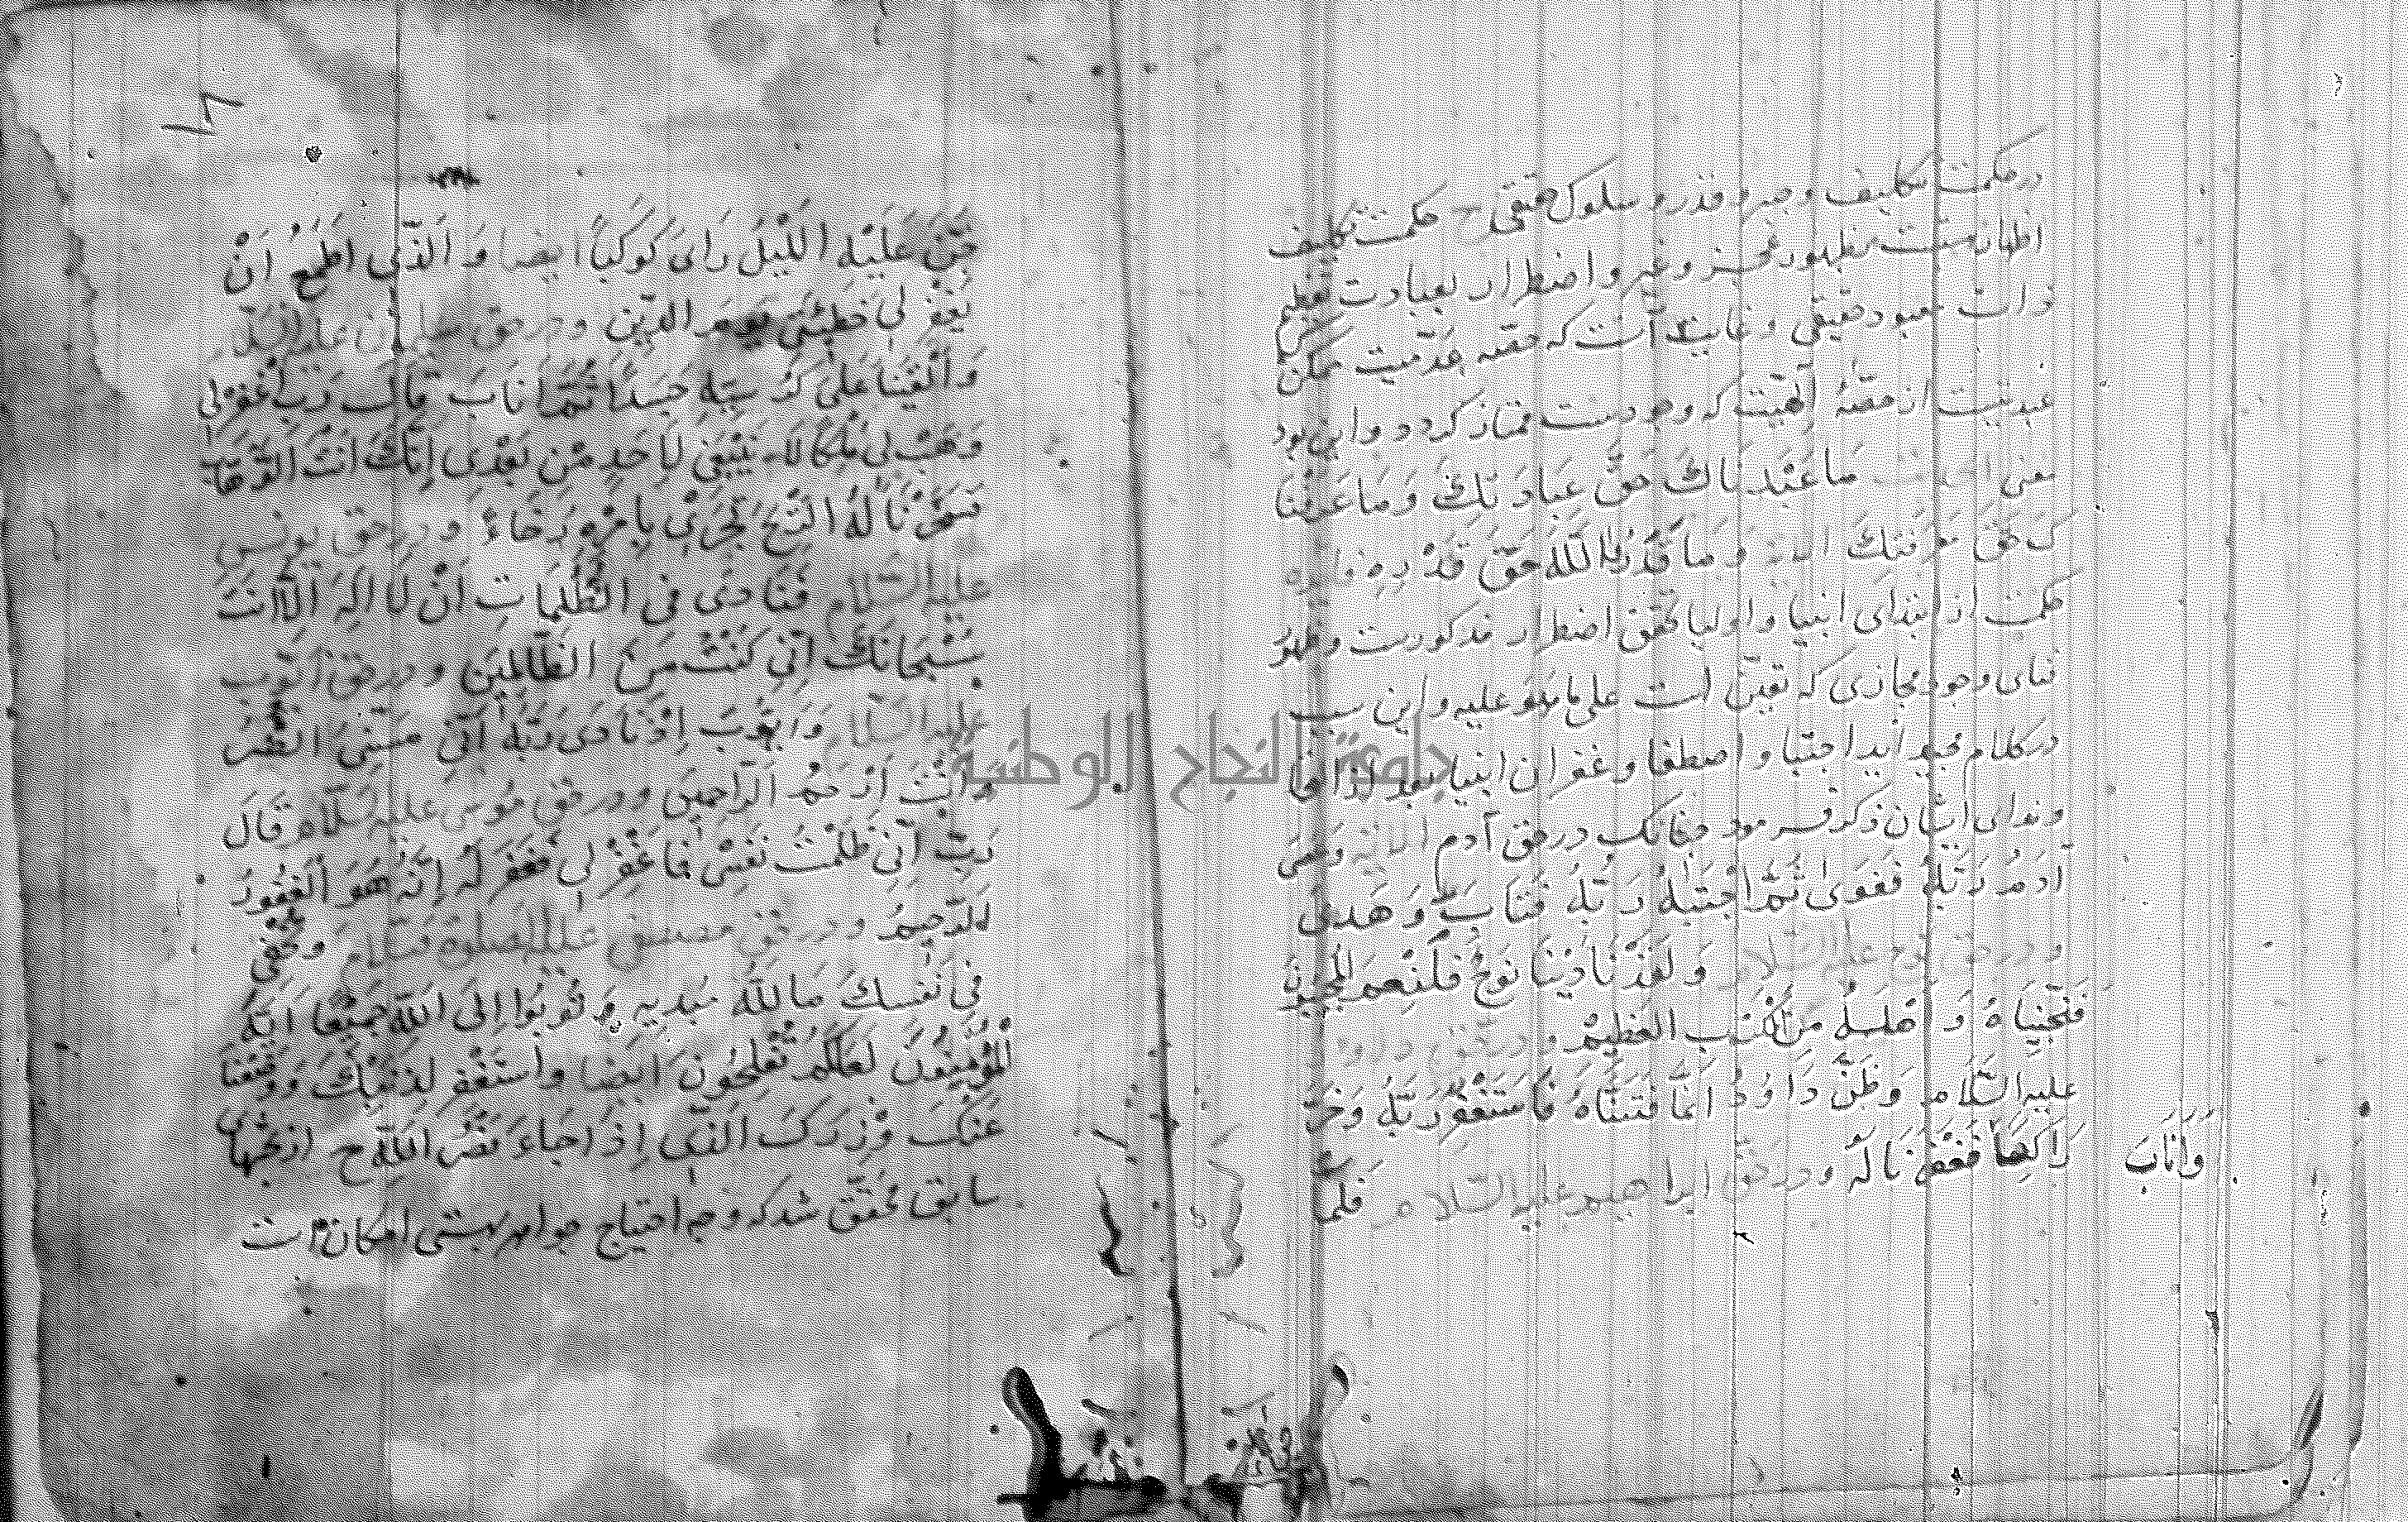 در حکمت تکلیف و جبر و قدر و سلوک حقیقی - حکمت تکلیف
اظهار بظهور عجز و اضطرار بعبادت تعظیم
ذات معبود حقیقی و غایت آنست که حصه عدمیت ممکن
عبدیت از حصه الهیت که وجودست ممتاز کردد و این بود
معنی مَا عَبَدْنَاكَ حَقَّ عِبَادَتِكَ وَمَا عَرَفْنَا
كَ حَقَّ مَعْرِفَتِكَ وَمَا قَدَرُوا اللّٰهَ حَقَّ قَدْرِهِ
حکمت از ابتدای انبیا و اولیا تحقق اضطرار مذکورست و ظهور
فنای وجود مجازی که تعین است علی ما هو علیه و این سبب
در کلام مجید اجتبا و اصطفا و غفران انبیا بعد
و ندای ایشان ذکر فرمود چنانک در حق آدم وَعَصَى
آدَمُ رَبَّهُ فَغَوَىٰ ثُمَّ اجْتَبٰهُ رَبُّهُ فَتَابَ وَهَدٰى
و در حق نوح علیه السلام وَلَقَدْ نَادَيْنَا نُوحٌ فَلَنِعْمَ الْمُجِيبُونَ
فَنَجَّيْنَاهُ وَأَهْلَهُ مِنَ الْكَرْبِ الْعَظِيمِ و در حق داود
علیه السلام وَظَنَّ دَاوُدُ أَنَّمَا فَتَنَّاهُ فَاسْتَغْفَرَ رَبَّهُ وَخَرَّ
رَاكِعًا وَأَنَابَ فَغَفَرْنَا لَهُ و در حق ابراهیم علیه السلام فَلَمَّا
جَنَّ عَلَيْهِ اللَّيْلُ رَأَىٰ كَوْكَبًا ایضا وَالَّذِي أَطْمَعُ أَنْ
يَغْفِرَ لِي خَطِيئَتِي يَوْمَ الدِّينِ و در حق سلیمان علیه السلام
وَأَلْقَيْنَا عَلَىٰ كُرْسِيِّهِ جَسَدًا ثُمَّ أَنَابَ قَالَ رَبِّ اغْفِرْ لِي
وَهَبْ لِي مُلْكًا لَا يَنْبَغِي لِأَحَدٍ مِنْ بَعْدِي إِنَّكَ أَنْتَ الْوَهَّابُ
فَسَخَّرْنَا لَهُ الرِّيحَ تَجْرِي بِأَمْرِهِ رُخَاءً و در حق یونس
علیه السلام فَنَادَىٰ فِي الظُّلُمَاتِ أَنْ لَا إِلٰهَ إِلَّا أَنْتَ
سُبْحَانَكَ إِنِّي كُنْتُ مِنَ الظَّالِمِينَ و در حق ایوب
علیه السلام وَأَيُّوبَ إِذْ نَادَىٰ رَبَّهُ أَنِّي مَسَّنِيَ الضُّرُّ
وَأَنْتَ أَرْحَمُ الرَّاحِمِينَ و در حق موسی علیه السلام قَالَ
رَبِّ إِنِّي ظَلَمْتُ نَفْسِي فَاغْفِرْ لِي فَغَفَرَ لَهُ إِنَّهُ هُوَ الْغَفُورُ
الرَّحِيمُ و در حق علیه الصلوة و سلام وَتُخْفِي
فِي نَفْسِكَ مَا اللّٰهُ مُبْدِيهِ وَتُوبُوا إِلَى اللّٰهِ جَمِيعًا أَيُّهَ
الْمُؤْمِنُونَ لَعَلَّكُمْ تُفْلِحُونَ ایضا وَاسْتَغْفِرْ لِذَنْبِكَ وَوَضَعْنَا
عَنْكَ وِزْرَكَ الَّذِي إِذَا جَاءَ نَصْرُ اللّٰهِ ح ازینجهای
سابق محقق شد که وجه احتیاج جواهر هستی امکان است
جامعة النجاح الوطنية